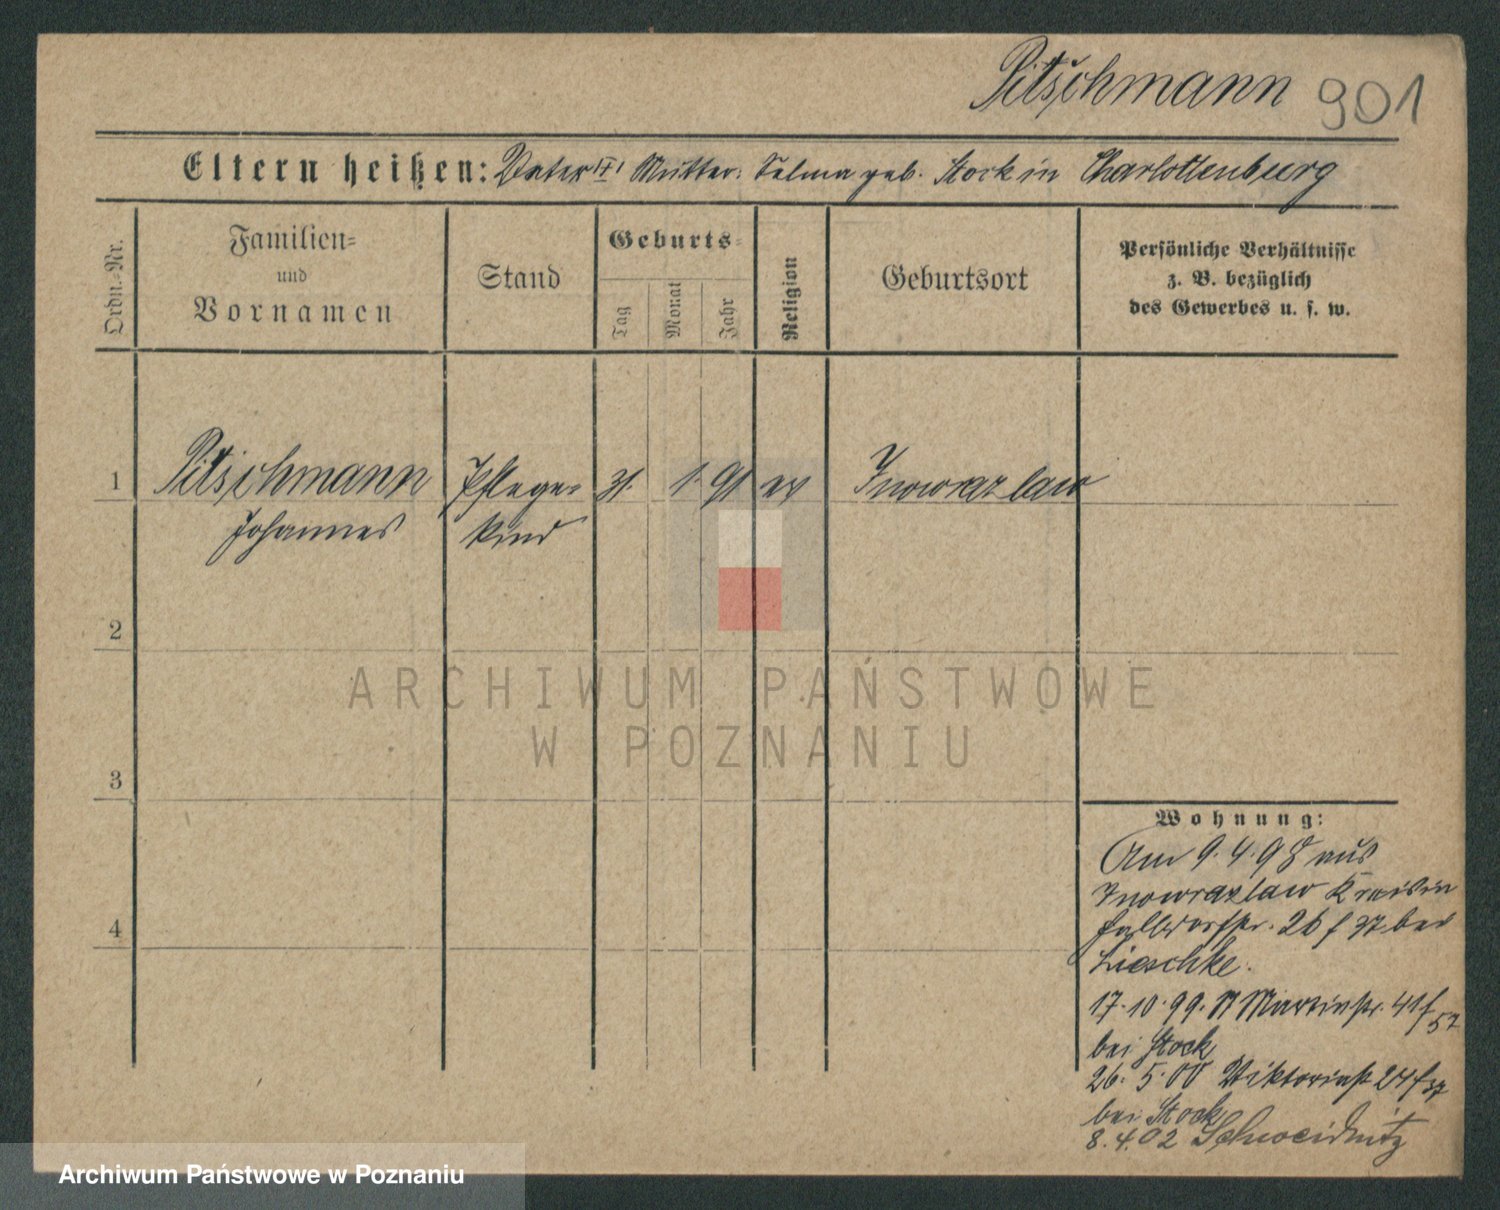 Pitschmann 901
Eltern heißen: Vater Mutter: Selma geb. Stock in Charlottenburg
Ordn.-Nr.
Familien-
und
Vornamen
Stand
Geburts-
Tag
Monat
Jahr
Religion
Geburtsort
Persönliche Verhältnisse
z. B. bezüglich
des Gewerbes u. s. w.
1 Pitschmann Pflege- 31. 1. 91 ev Inowrazlaw
Johannes kind
2
ARCHIWUM PAŃSTWOWE
W POZNANIU
3
4
Wohnung:
Am 9.4.98 aus
Inowrazlaw Kreis in
26 f bei
Lieschke.
17.10.99. St Martinstr. 41 f 57
bei Stock
26.5.00 Viktoriastr 24 f 37
bei Stock
8.4.02 Schweidnitz
Archiwum Państwowe w Poznaniu